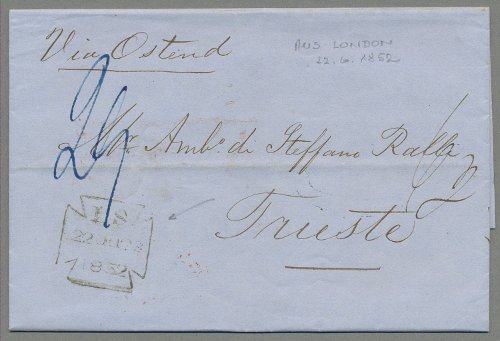 Via Ostend
AUS LONDON
22.6.1852
24
Ambº. di Steffano Ralli
Trieste
22 JU
1852